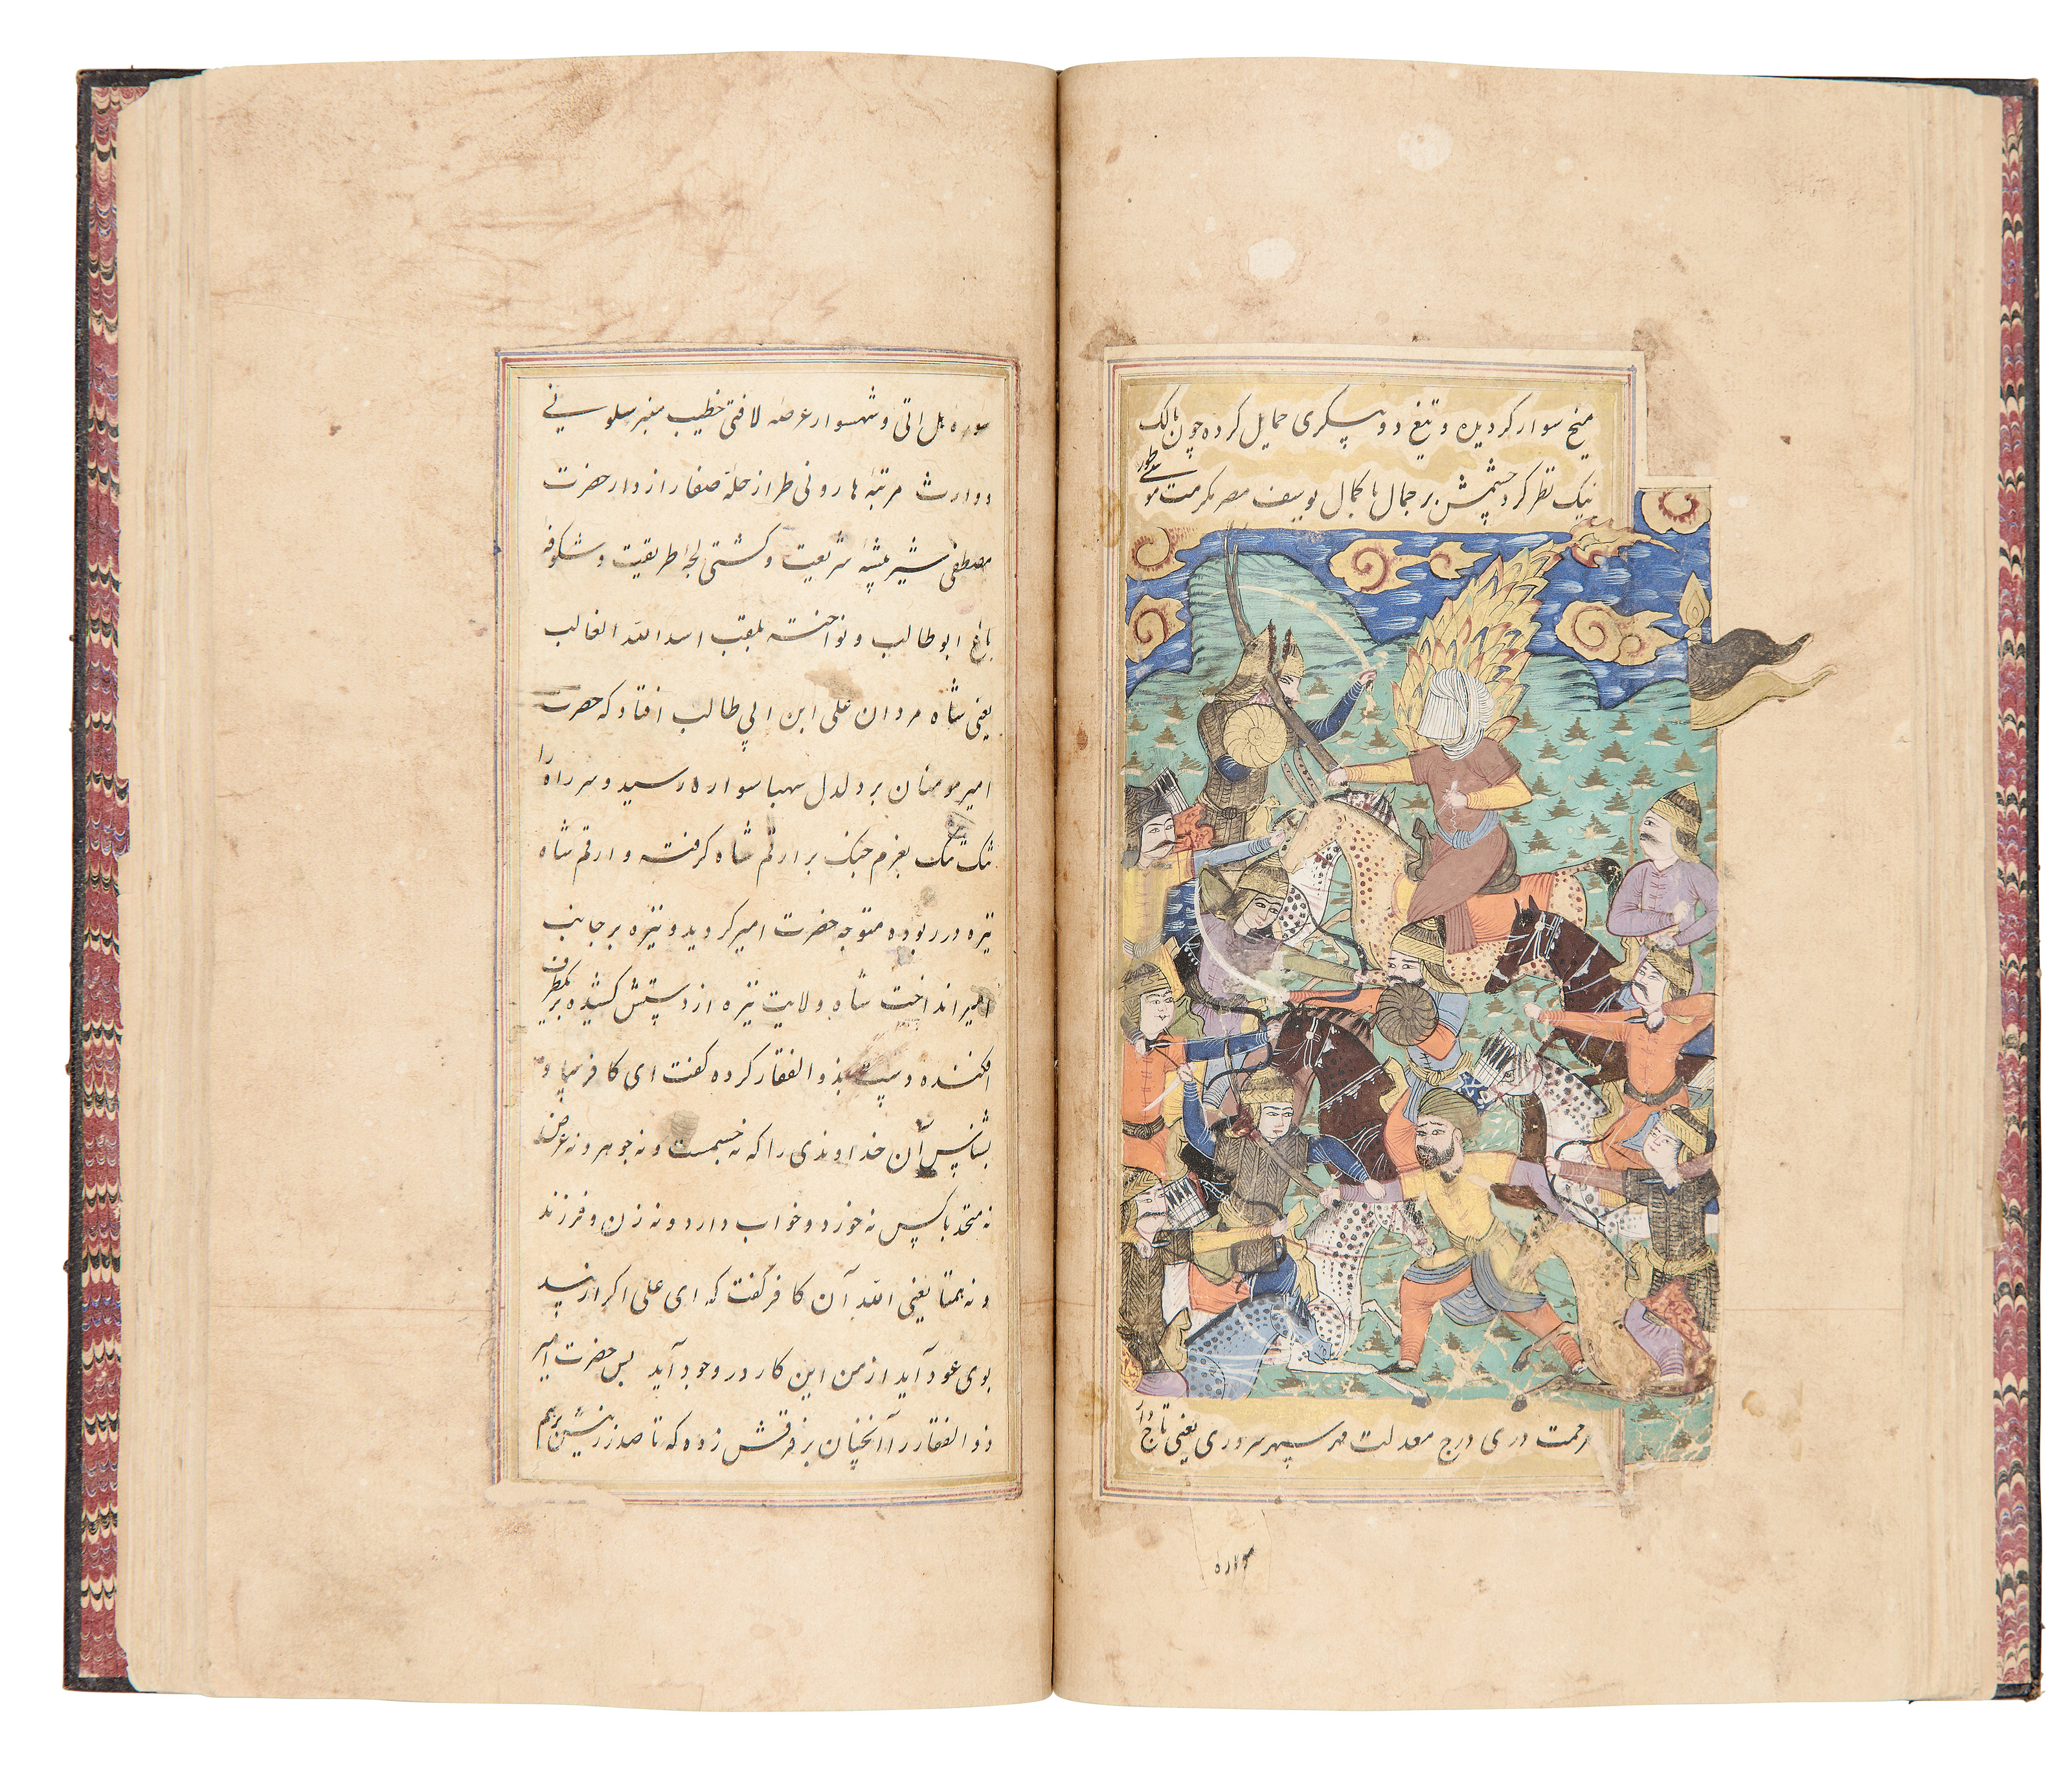 میخ سوار کردیده و تیغ دو پیکری حمایل کرده چون بانک
نیک نظر کرد چشمش بر جمال با کمال یوسف مصر مکرمت موسی طور
مرحمت دری درج معدلت مهر سپهر سروری یعنی تاج دار
سوره
سوره هل اتی و شهسوار عرصه لا فتی خطیب منبر سلونی
و وارث مرتبه هارونی طراز حله صفار از دار حضرت
مصطفی شیر بیشه شریعت و کشتی لجه طریقت و شکوفه
باغ ابو طالب و نواخته بلقب اسد الله الغالب
یعنی شاه مردان علی ابن ابی طالب افتاد که حضرت
امیر مومنان بر دلدل سهبا سواره رسید و سر راه را
تنک تنک بعزم جنک بر ارقم شاه کرفته و ارقم شاه
نیزه در ربوده متوجه حضرت امیر کردید و نیزه بر جانب
امیر انداخت شاه ولایت نیزه از دستش کشیده بر یکطرف
افکنده دست بذو الفقار کرده کفت ای کافر بیا و
بشناس آن خداوندی را که نه جسمست و نه جوهر و نه عرض
نه متحد با کس نه خورد و خواب دارد و نه زن و فرزند
و نه همتا یعنی الله آن کافر کفت که ای علی اکر از سپید
بوی عود آید از من این کار در وجود آید پس حضرت امیر
ذو الفقار را آنچنان بر فرقش زده که تا صدر زینش بر هم